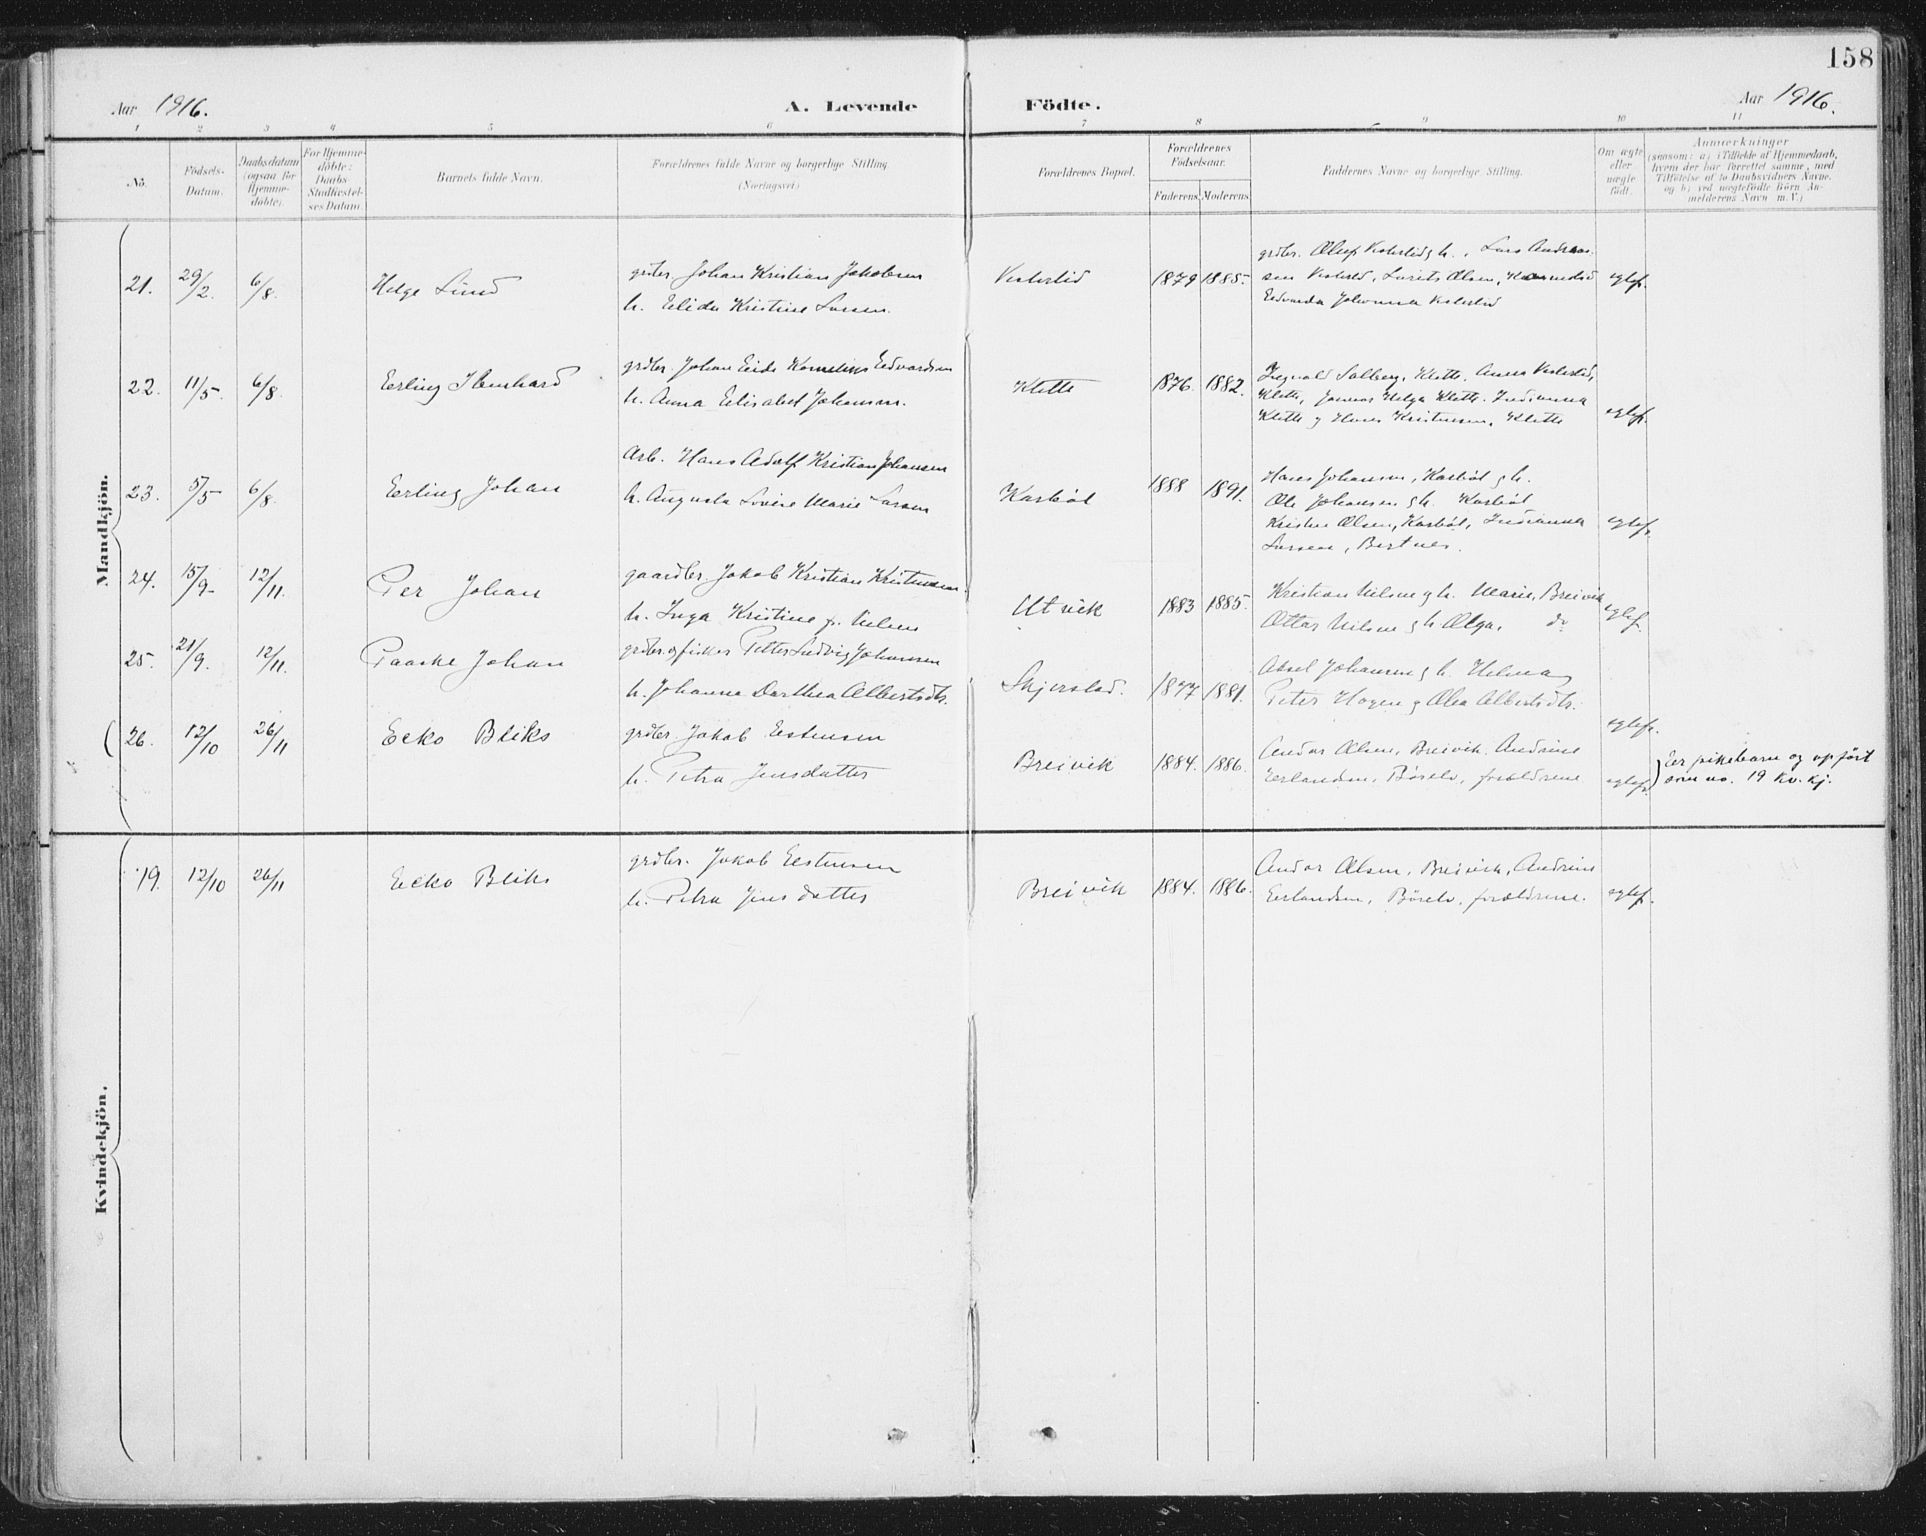 158
Aar 1916. A. Levende Födte. Aar 1916.
1 2 3 4 5 6 7 8 9 10 11
No. Födsels-Datum. Daabsdatum (ogsaa for Hjemme-döbte). For Hjemme-döbte: Daabs-Stadfæstel-ses Datum. Barnets fulde Navn. Forældrenes fulde Navne og borgerlige Stilling (Næringsvei) Forældrenes Bopæl. Forældrenes Födselsaar. Faderens Moderens Faddernes Navne og borgerlige Stilling. Om ægte eller uægte födt. Anmerkninger (saasom: a) i Tilfælde af Hjemmedaab, hvem der har forrettet samme, med Tilföielse af to Daabsvidners Navne. og b) ved uægtefödte Börn An-melderens Navn m. V.)
Mandkjön.
21. 29/2 6/8 Helge Lund grdbr Johan Kristian Jakobsen
h. Elida Kristine Larsen. 1879 1885.
Edvarda Johanna
22. 11/5 6/8. Erling grdbr. Johan Edvardsen
h. Anna Elisabet Johansen. Klette 1876. 1882.
Klette, Helga Klette.
Klette og Hans Kristensen, Klette
23. 5/5 6/8. Erling Johan Arb. Hans Adolf Kristian Johansen
h. Augusta Lovise Marie Larsen Karbøl 1888 1891. Hans Johansen, Karbøl og h.
Ole Johansen og h. Karbøl
Kristine Olsen, Karbøl,
Larsen, Bertnes.
24. 15/9 12/11. Per Johan gaardbr. Jakob Kristian Kristensen.
h. Inga Kristine f. Nilsen Utvik 1883 1885. Kristian Nilsen og h. Marie, Breivik
Ottar Nilsen og h Olga, do
25. 21/9. 12/11. Paaske Johan grdbr. og fisker Petter Ludvig Johansen
h. Johanna Dorthea Albertsdtr. Skjerstad. 1877 1881. Aksel Johansen og h. Helma
Peter Hagen og Olea Albertsdtr.
26. 12/10 26/11 Ecko Bliks grdbr. Jakob Estensen
h. Petra Jensdatter Breivik 1884. 1886. Andor Olsen, Breivik, Andrine
Erlandsen, Børelv, forældrene
Er pikebarn og opført
som no. 19 Kv. kj.
Kvindekjön.
19. 12/10 26/11 Ecko Bliks grdbr. Jakob Estensen
h. Petra Jensdatter Breivik 1884. 1886. Andor Olsen, Breivik, Andrine
Erlandsen, Børelv, forældrene.